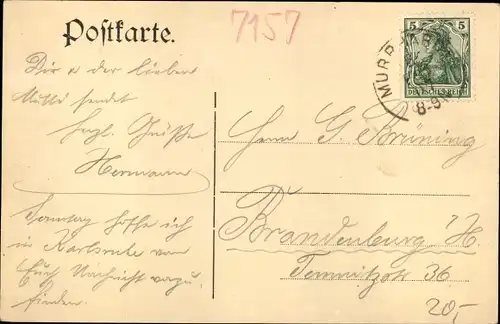 Postkarte.
7157
5 5
DEUTSCHES REICH
MURR
8-9
Dir u der lieben
Mutti sendet
herzl. Grüße
Hermann
Sonntag hoffe ich
in Karlsruhe von
Euch Nachricht vorzu-
finden.
Herrn G. Brüning
Brandenburg a/H.
Temnitzstr 36
20,-